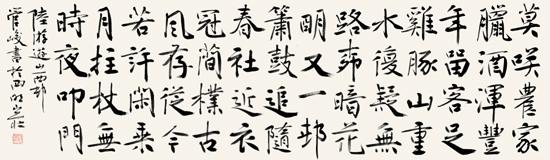 莫咲農家
臘酒渾豐
年留客足
雞豚山重
水復疑無
路柳暗花
明又一邨
簫鼓追隨
春社近衣
冠簡樸古
風存從今
若許閑乘
月拄杖無
時夜叩門
陸游遊山西邨
管峻書於西